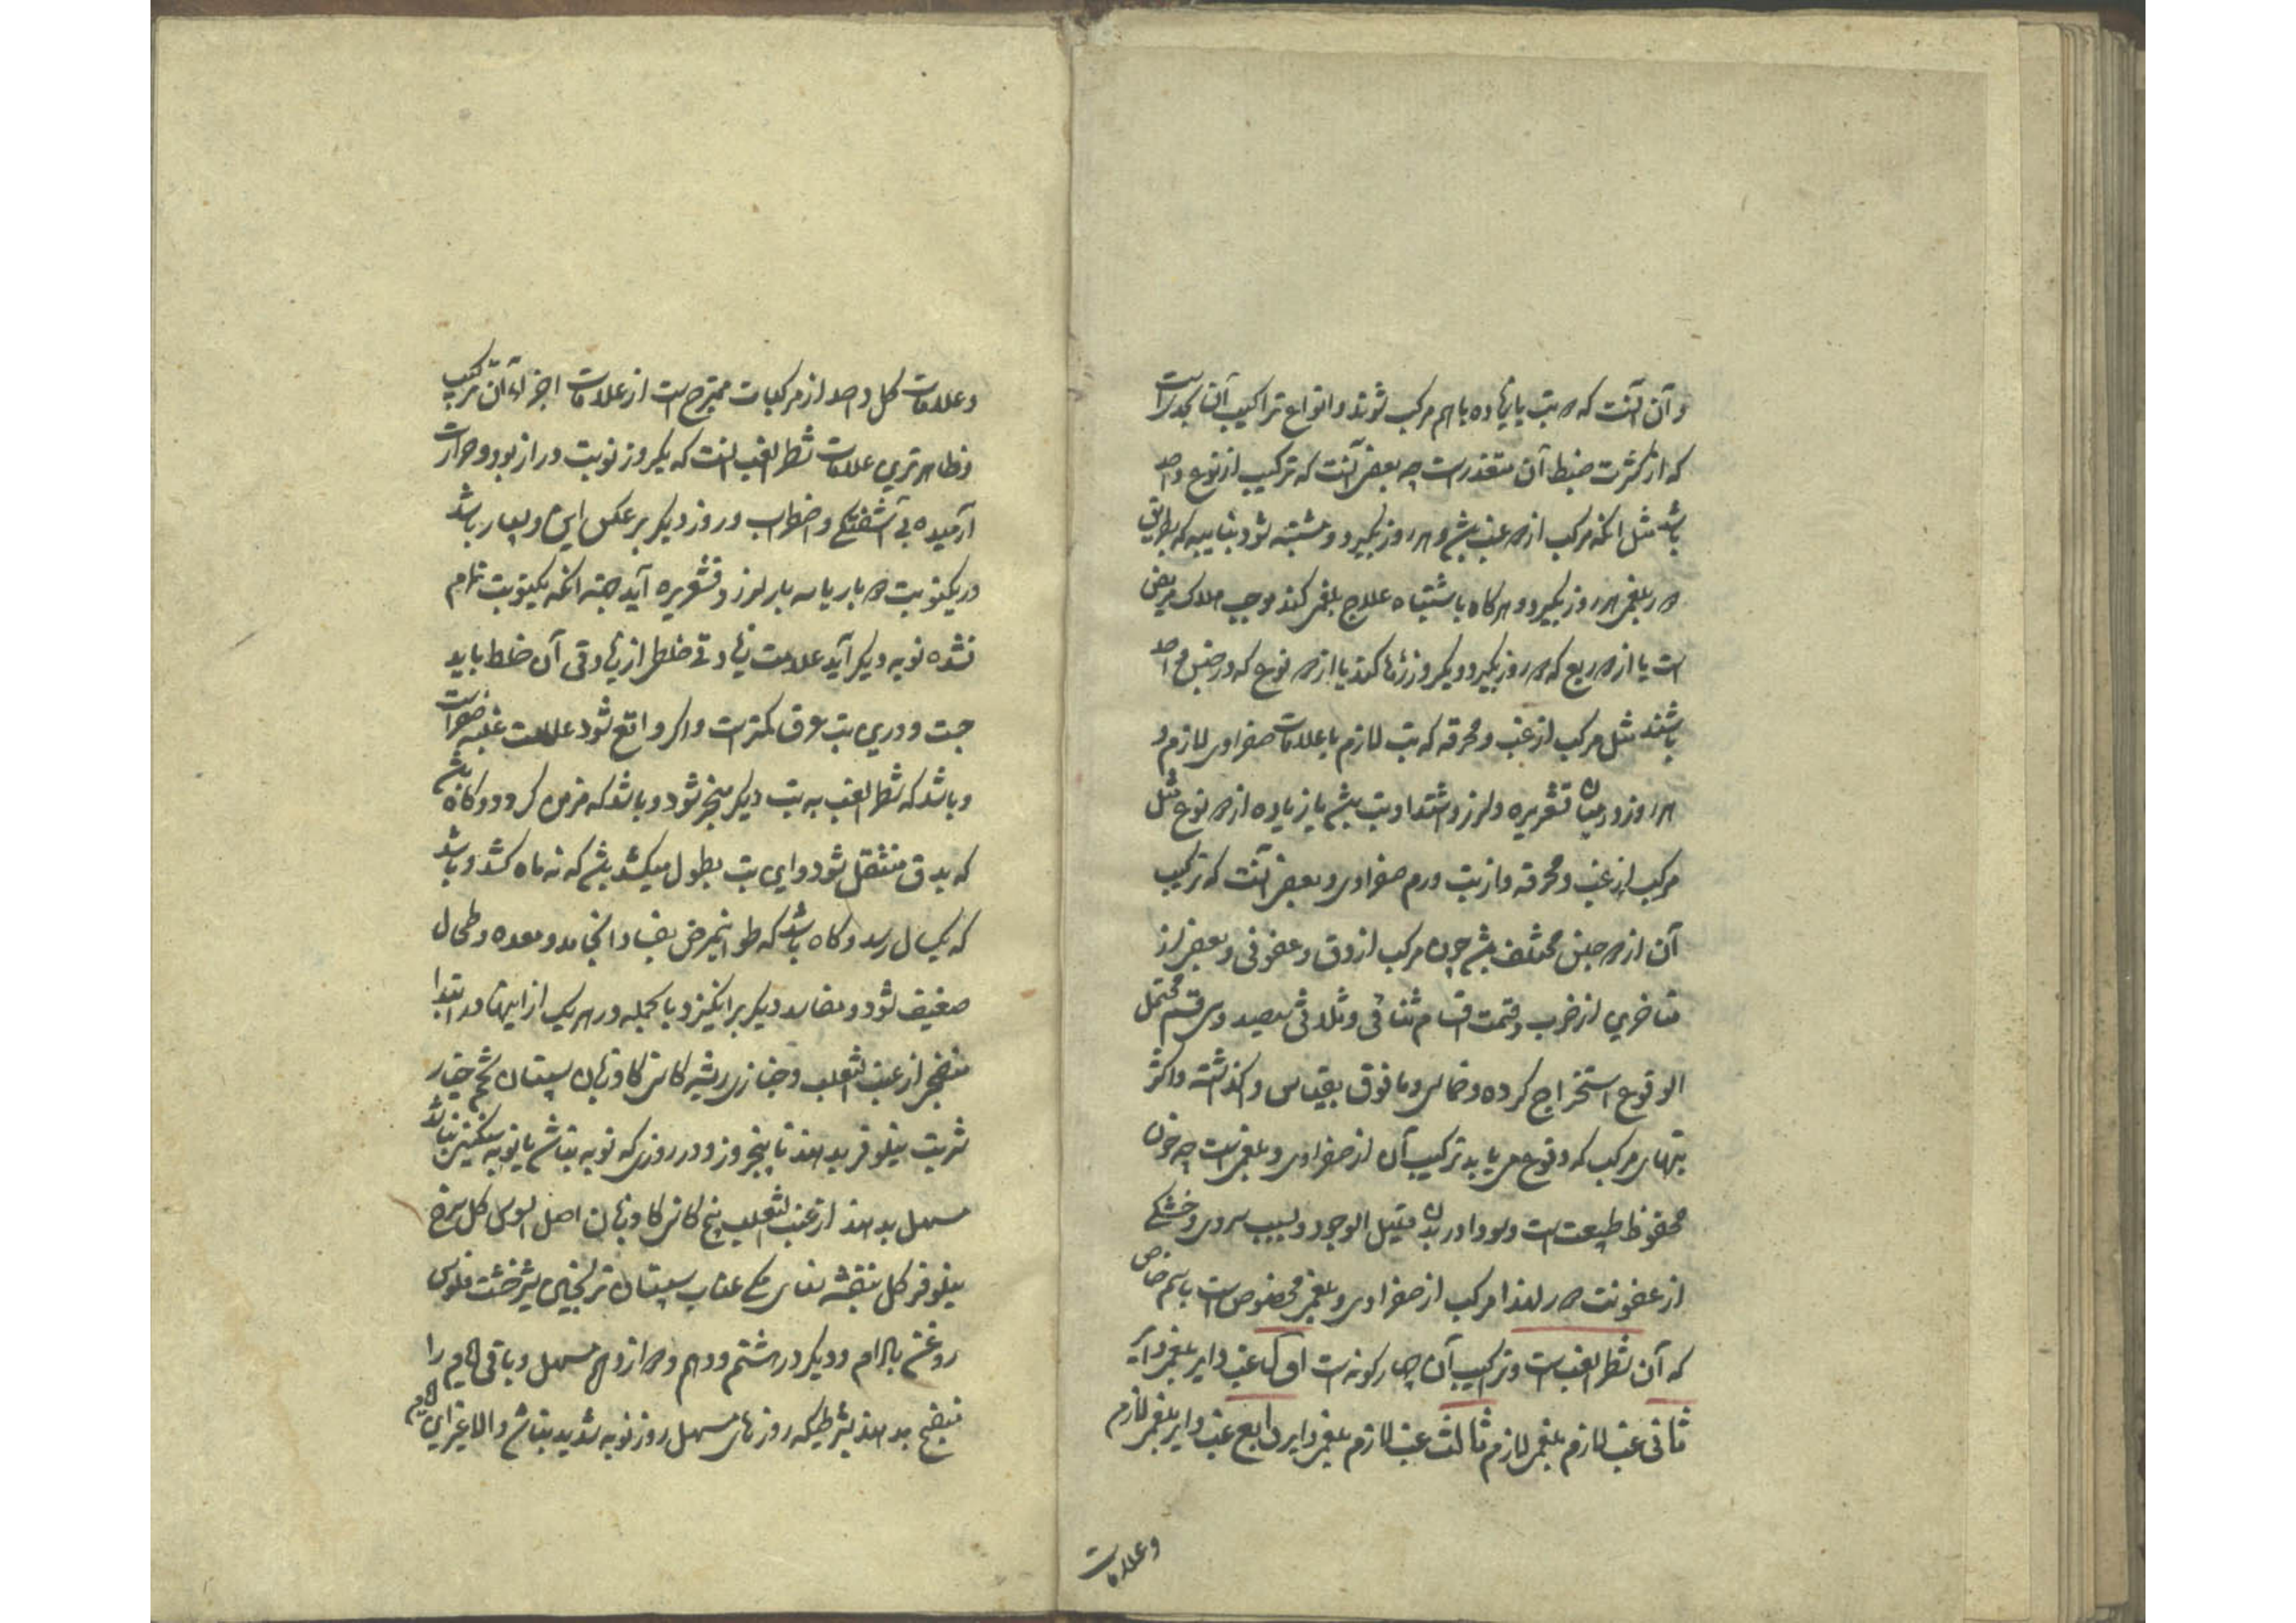 و آن آنست که دو تب یا زیاده با هم مرکب شوند و انواع تراکیب آن بحدیست
که از کثرت ضبط آن متعذرست چه بعضی آنست که ترکیب از نوع واحد
باشد مثل آنکه مرکب از دو غب بیش و هر روز بگیرد و مشتبه شود بنایبه که بطریق
دور بلغمی هر روز بگیرد و هرگاه باشتباه علاج بلغمی کنند موجب هلاک مریض
است یا از دو ربع که دو روز بگیرد و یکروز رها کند یا از دو نوع که در جنس واحد
باشند مثل مرکب از غب و محرقه که تب لازم با علامات صفراوی لازم و
هر روز در میان قشعریره و لرز و اشتداد تب بیش یا زیاده از دو نوع مثل
مرکب از غب و محرقه و از تب ورم صفراوی و بعضی آنست که ترکیب
آن از دو جنس مختلف بیش چون مرکب از دق و عفونی و بعضی از
متاخرین از ضرب و قسمت اقسام ثنائی و ثلاثی سیصد و سی قسم محتمل
الوقوع استخراج کرده و خماسی و مافوق بقیاس واگذاشته و اکثر
تبهای مرکب که وقوع می یابد ترکیب آن از صفراوی و بلغمی است چه خون
محفوظ طبیعت است و سودا در بدن قلیل الوجود و بسبب سردی و خشکی
از عفونت دور لهذا مرکب از صفراوی و بلغمی مخصوص است باسم خاص
که آن شطر الغب است و ترکیب آن چهار گونه است اول غب دایر بلغمی دایر
ثانی غب لازم بلغمی لازم ثالث غب لازم بلغمی دایر رابع غب دایر بلغمی لازم
وعلامات
و علامات کل واحد از مرکبات ممتزج است از علامات اجزاء آن مرکب
و ظاهرترین علامات شطر الغب آنست که یکروز نوبت دراز بود و حرارت
آرمیده بی آشفتگی و اضطراب و روز دیگر برعکس این و بسیار باشد
در یکنوبت دو بار یا سه بار لرز و قشعریره آید جهة آنکه یکنوبت تمام
نشده نوبه دیگر آید علامت زیادتی خلط از زیادتی آن خلط باید
جست و درین تب عرق کمترست و اگر واقع شود علامت غلبه صفراست
و باشد که شطر الغب به تب دیگر منجر شود و باشد که مزمن گردد و گاه بیش
که بدق منتقل شود و این تب بطول میکشد بیش که نه ماه کشد و باشد
که بیکسال رسد و گاه باشد که طول اینمرض بفساد انجامد و معده و طحال
ضعیف شود و مفاسد دیگر برانگیزد و بالجمله در هر یک از اینها در ابتدا
منضجی از عنب الثعلب و خبازی ریشه کاسنی گاوزبان سپستان تخم خیار
شربت نیلوفر بدهند تا پنجروز و در روزی که نوبه نباشد یا نوبه سنگین نباشد
مسهل بدهند از عنب الثعلب بیخ کاسنی گاوزبان اصل السوس گل سرخ
نیلوفر گل بنفشه سنای مکی عناب سپستان ترنجبین شیرخشت فلوس
روغن بادام و دیگر در هشتم و دهم و دوازدهم مسهل و باقی ایام را
منضج بدهند بشرطیکه روزهای مسهل روز نوبه شدید نباشد و الا غیر این ایام